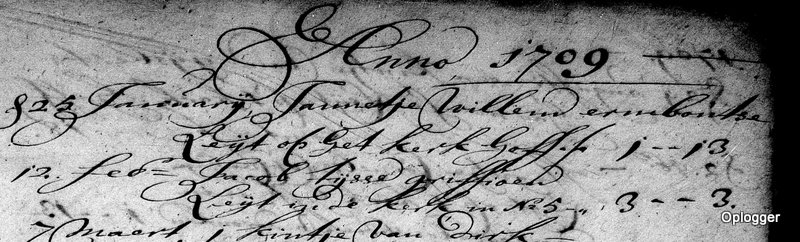 Anno 1709
825 January Tannetje Willem ermboutse
Leyt op het kerk hoff f 1 -- 13
12 feb: Jacob tysse griffioen
Leyt inde kerk in No 5 - 3 -- 3.
7 Maert 1 kintje van Dirk
Oplogger